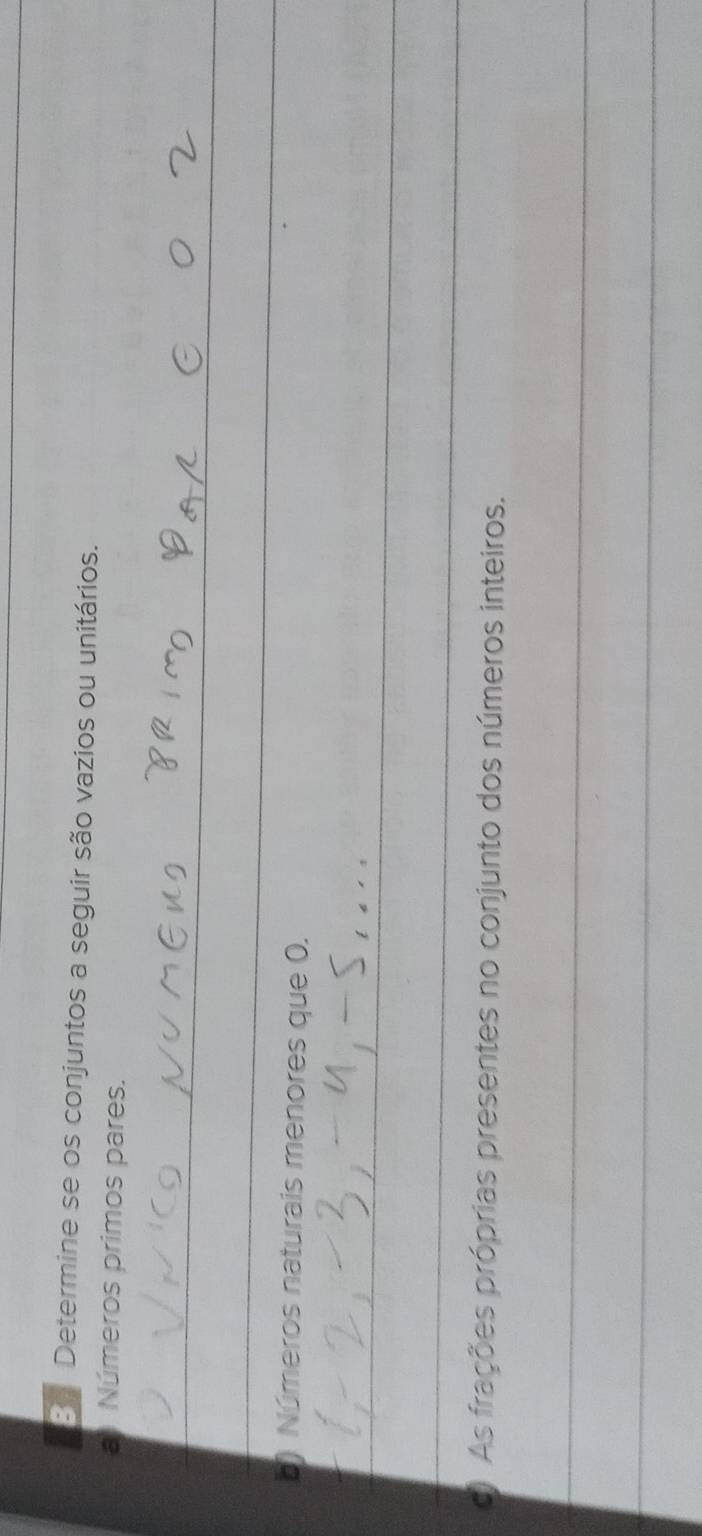 3 Determine se os conjuntos a seguir são vazios ou unitários.
a) Números primos pares.
O UNICO NUMERO PRIMO PAR E O 2
b) Números naturais menores que 0.
-1, -2, -3, -4, -5, ...
c) As frações próprias presentes no conjunto dos números inteiros.